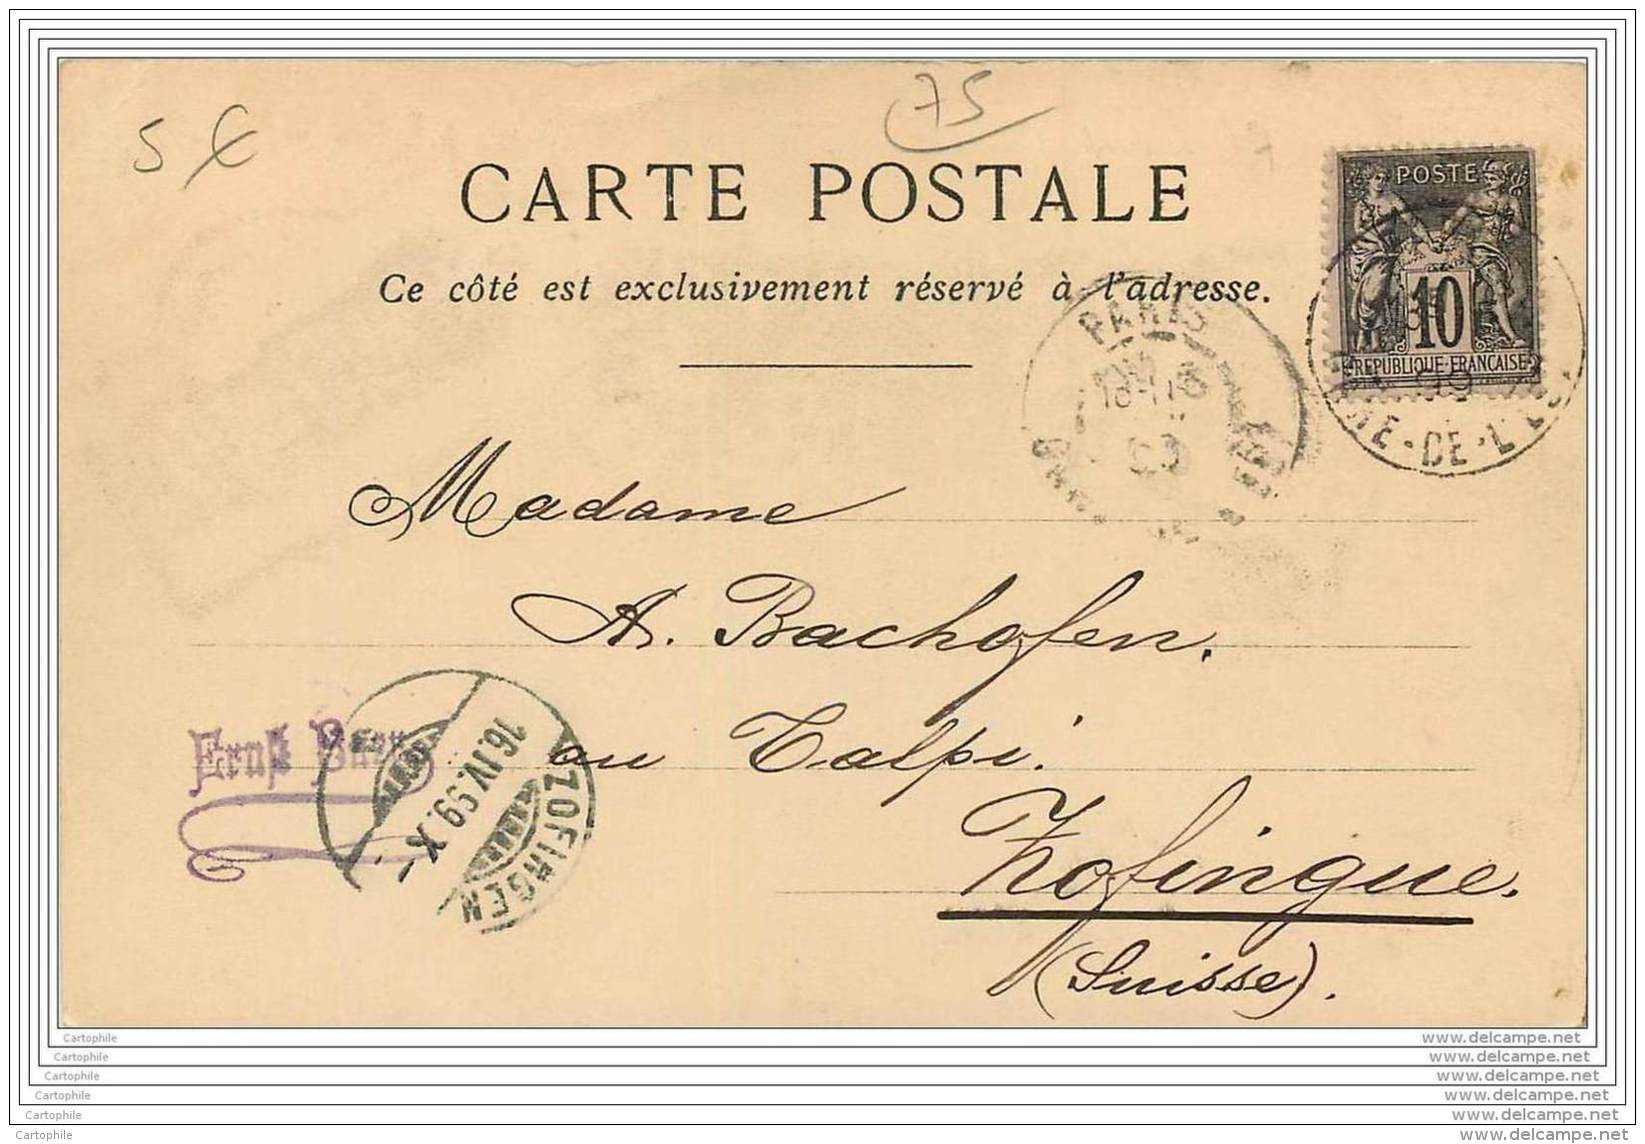 5 €
75
CARTE POSTALE
Ce côté est exclusivement réservé à l'adresse.
POSTE
10
REPUBLIQUE FRANCAISE
99
DE - L
PARIS
Madame
A. Bachofen.
au Talpi.
Zofingue.
(Suisse).
Ernst
ZOFINGEN
16.IV.99.X
Cartophile
Cartophile
Cartophile
Cartophile
Cartophile
Cartophile
www.delcampe.net
www.delcampe.net
www.delcampe.net
www.delcampe.net
www.delcampe.net
www.delcampe.net